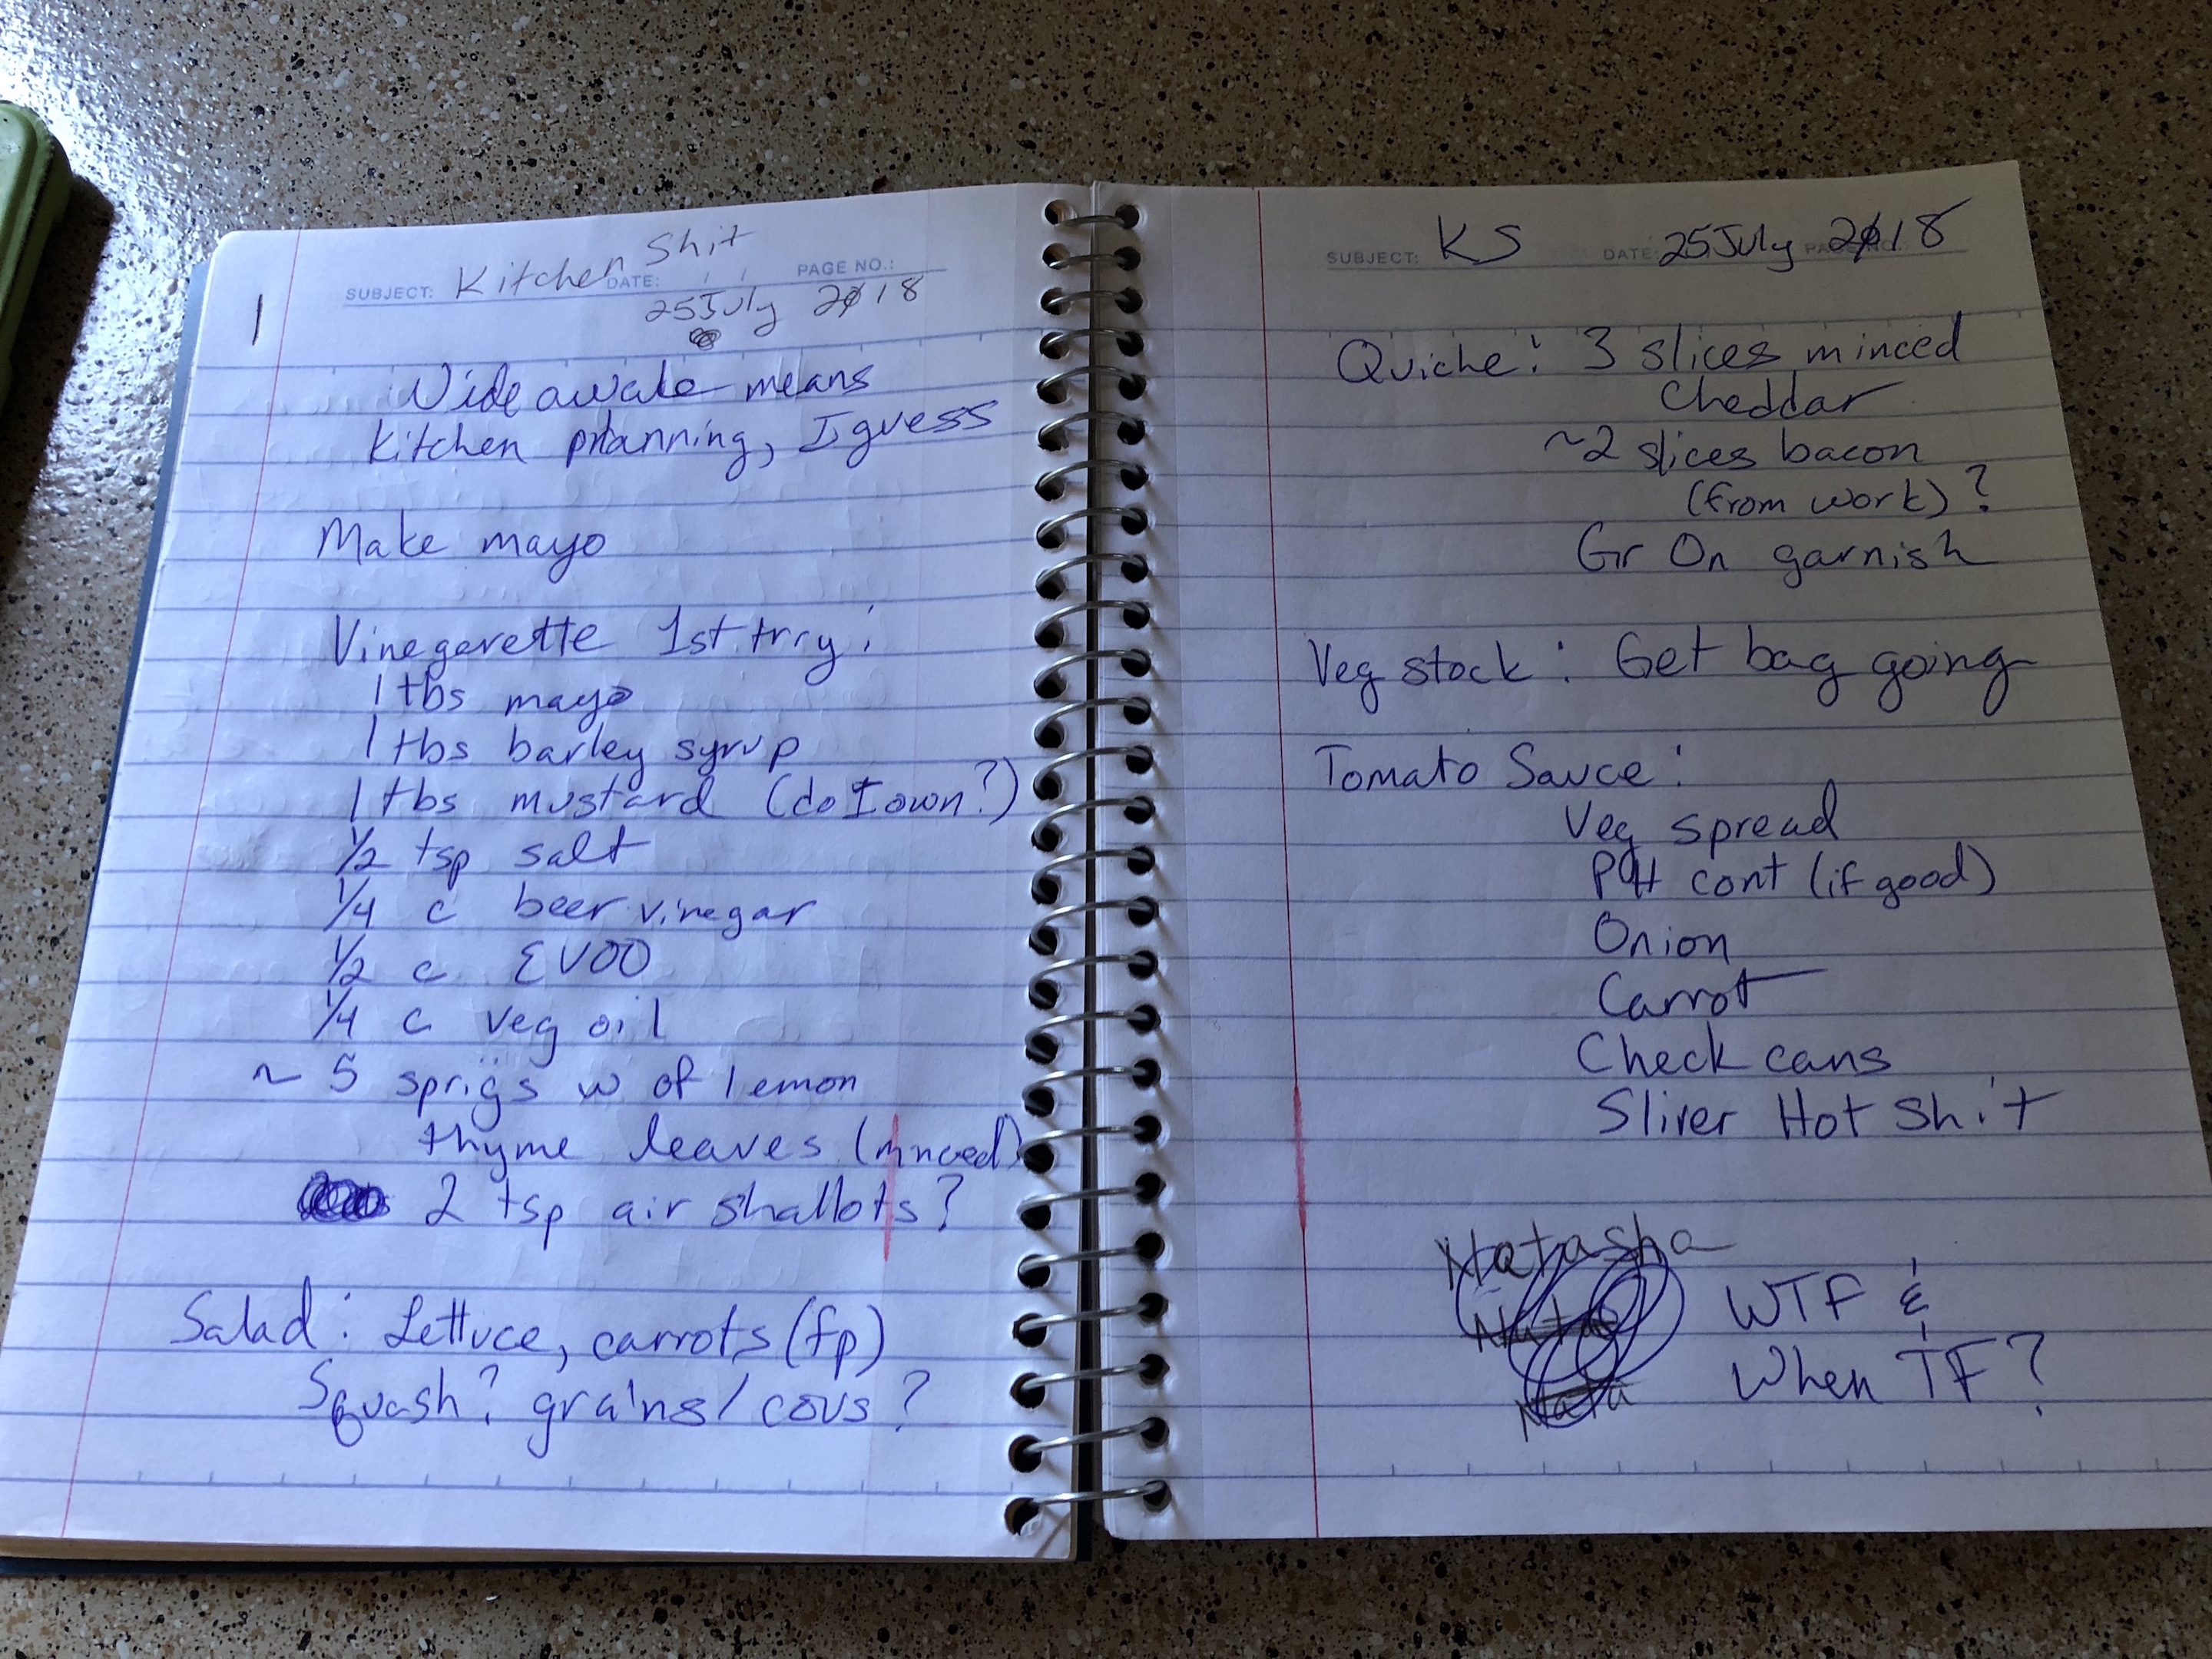 Kitchen Shit
SUBJECT: DATE: / / PAGE NO.:
25 July 2018
1
Wide awake means
kitchen planning, I guess
Make mayo
Vinegerette 1st trry:
1 tbs mayo
1 tbs barley syrup
1 tbs mustard (do I own?)
1/2 tsp salt
1/4 c beer vinegar
1/2 c EVOO
1/4 c veg oil
~ 5 sprigs w of lemon
thyme leaves (mnced)
2 tsp air shallots?
Salad: Lettuce, carrots (fp)
Squash? grains/cous?
SUBJECT: KS DATE: 25 July 2018 PAGE NO.:
Quiche: 3 slices minced
Cheddar
~2 slices bacon
(from work)?
Gr On garnish
Veg stock: Get bag going
Tomato Sauce:
Veg spread
cont (if good)
Onion
Carrot
Check cans
Sliver Hot Shit
Natasha
Nata
Nata
WTF &
When TF?